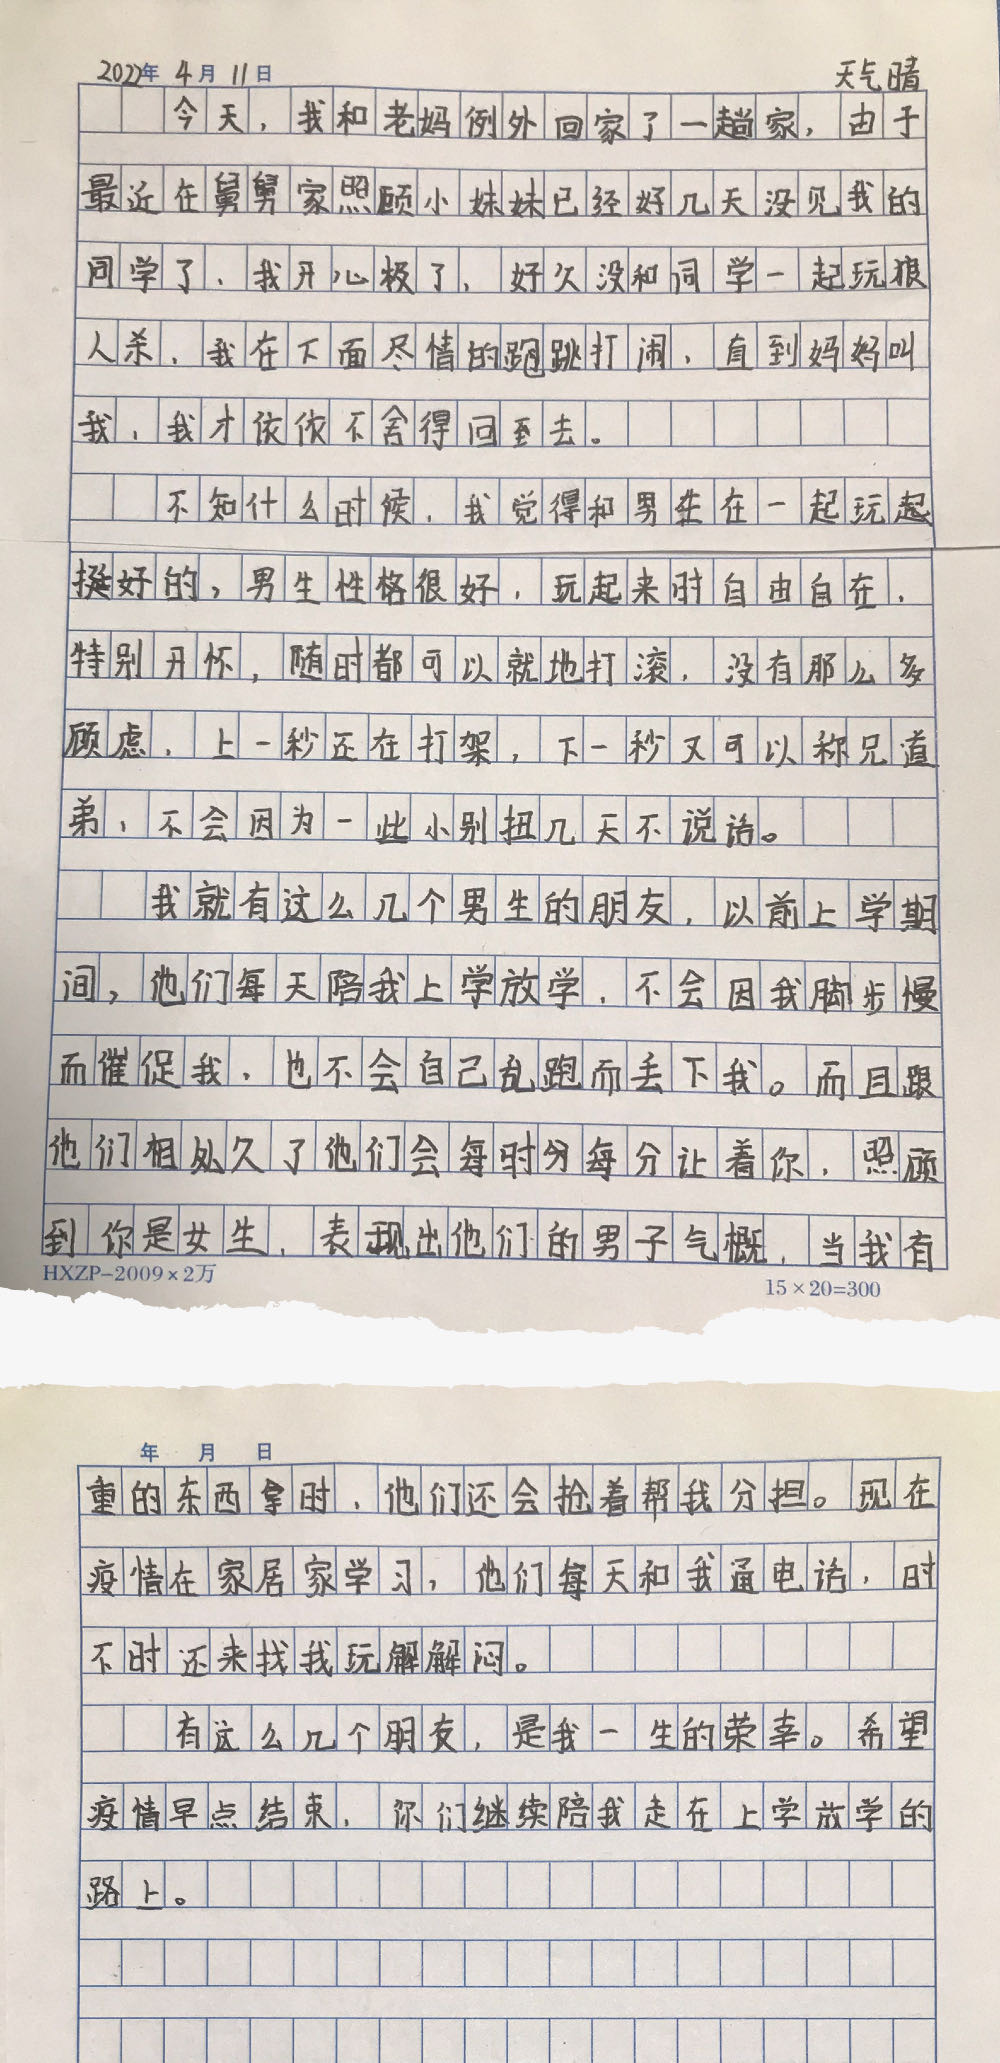 2022年 4月 11日 天气晴
今天，我和老妈例外回家了一趟家，由于
最近在舅舅家照顾小妹妹已经好几天没见我的
同学了，我开心极了，好久没和同学一起玩狼
人杀，我在下面尽情的跑跳打闹，直到妈妈叫
我，我才依依不舍得回到去。
不知什么时候，我觉得和男生在一起玩起
挺好的，男生性格很好，玩起来时自由自在，
特别开怀，随时都可以就地打滚，没有那么多
顾虑，上一秒还在打架，下一秒又可以称兄道
弟，不会因为一些小别扭几天不说话。
我就有这么几个男生的朋友，以前上学期
间，他们每天陪我上学放学，不会因我脚步慢
而催促我，也不会自己乱跑而丢下我。而且跟
他们相处久了他们会每时分每分让着你，照顾
到你是女生，表现出他们的男子气概，当我有
HXZP-2009×2万 15×20=300
年 月 日
重的东西拿时，他们还会抢着帮我分担。现在
疫情在家居家学习，他们每天和我通电话，时
不时还来找我玩解解闷。
有这么几个朋友，是我一生的荣幸。希望
疫情早点结束，你们继续陪我走在上学放学的
路上。